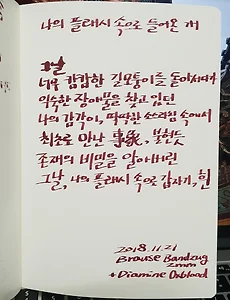 나의 플래시 속으로 들어온 개
그날
너무 캄캄한 길모퉁이를 돌아서다가
익숙한 장애물을 찾고 있던
나의 감각이, 딱딱한 소스라침 속에서
최초로 만난 事象, 불현듯
존재의 비밀을 알아버린
그날, 나의 플래시 속으로 갑자기, 흰
2018.11.21
Brause Bandzug
2mm
+ Diamine Oxblood